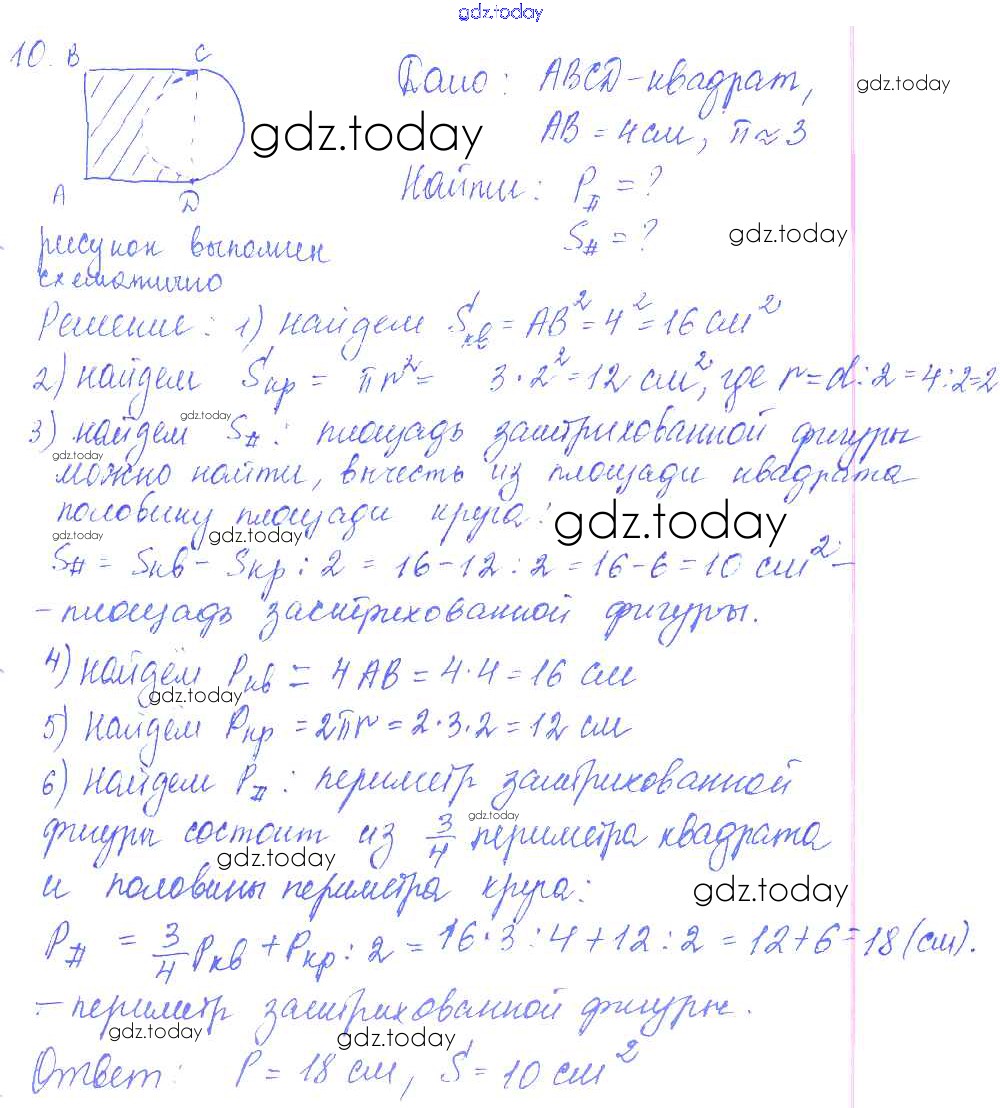 gdz.today
10. B C Дано: ABCD-квадрат, gdz.today
gdz.today AB = 4см, π≈3
A D Найти: P# = ?
рисунок выполнен S# = ? gdz.today
схематично
Решение: 1) найдем Sкв = AB² = 4² = 16 см²
2) найдем Sкр = πr² = 3·2² = 12 см², где r=d:2=4:2=2
gdz.today
3) найдем S#: площадь заштрихованной фигуры
gdz.today
можно найти, вычесть из площади квадрата
половину площади круга: gdz.today
gdz.today gdz.today
S# = Sкв - Sкр : 2 = 16 - 12 : 2 = 16 - 6 = 10 см² -
- площадь заштрихованной фигуры.
4) найдём Pкв = 4AB = 4·4 = 16 см
gdz.today
5) найдём Pкр = 2πr = 2·3·2 = 12 см
6) найдем P#: периметр заштрихованной
gdz.today
фигуры состоит из 3/4 периметра квадрата
gdz.today
и половины периметра круга: gdz.today
P# = 3/4 Pкв + Pкр : 2 = 16·3:4 + 12:2 = 12+6 = 18 (см).
- периметр заштрихованной фигуры.
gdz.today gdz.today
Ответ: P = 18 см, S = 10 см²